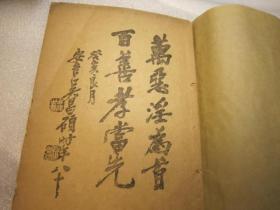 萬惡淫為首
百善孝當先
癸亥良月
安吉吳昌碩時年八十